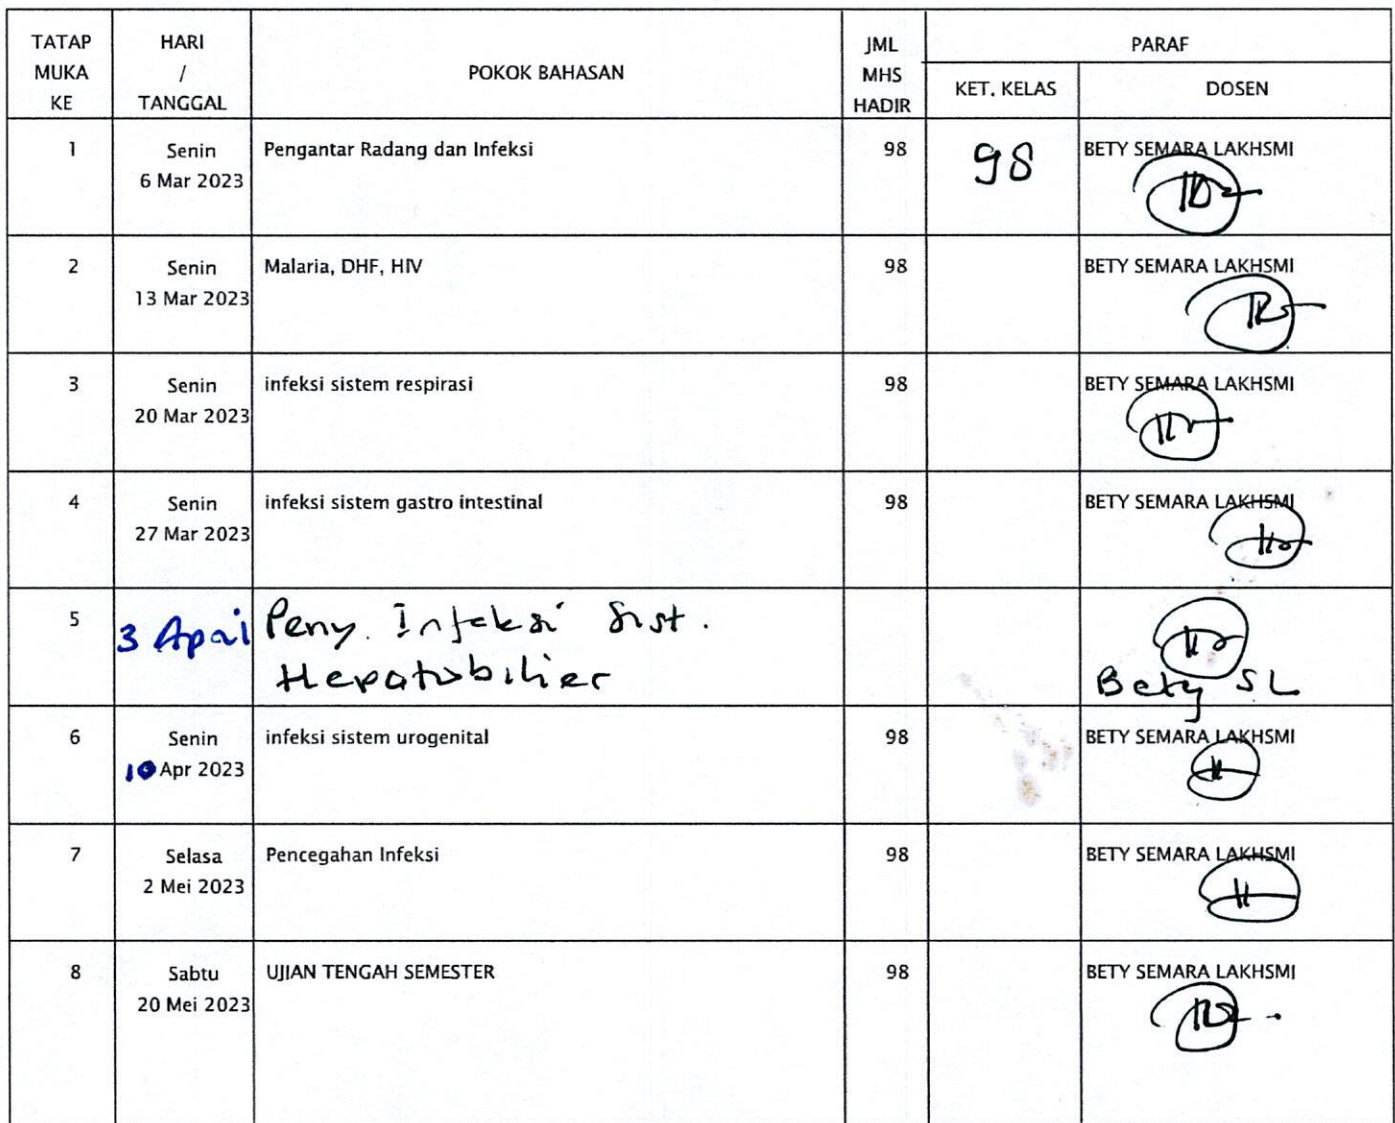 TATAP MUKA KE
HARI / TANGGAL
POKOK BAHASAN
JML MHS HADIR
PARAF
KET. KELAS
DOSEN
1
Senin
6 Mar 2023
Pengantar Radang dan Infeksi
98
98
BETY SEMARA LAKHSMI
2
Senin
13 Mar 2023
Malaria, DHF, HIV
98
BETY SEMARA LAKHSMI
3
Senin
20 Mar 2023
infeksi sistem respirasi
98
BETY SEMARA LAKHSMI
4
Senin
27 Mar 2023
infeksi sistem gastro intestinal
98
BETY SEMARA LAKHSMI
5
3 April
Peny. Infeksi Sist.
Hepatobilier
Bety SL
6
Senin
10 Apr 2023
infeksi sistem urogenital
98
BETY SEMARA LAKHSMI
7
Selasa
2 Mei 2023
Pencegahan Infeksi
98
BETY SEMARA LAKHSMI
8
Sabtu
20 Mei 2023
UJIAN TENGAH SEMESTER
98
BETY SEMARA LAKHSMI